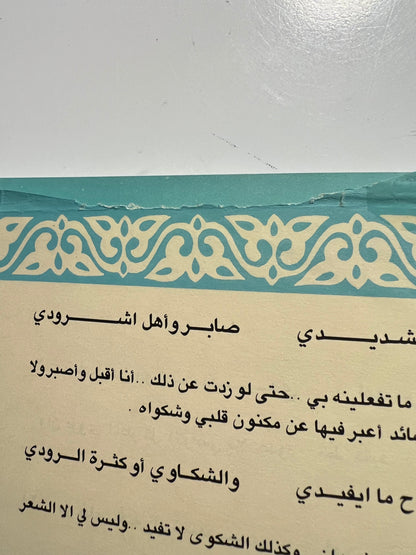 شديـــدي صابـر وأهل اشـــرودي
ما تفعلينه بي ..حتى لو زدت عن ذلك ..أنا أقبل وأصبر ولا
أعبر فيها عن مكنون قلبي وشكواه .
ح ما ايفيدي والشكاوي أو كثرة الرودي
وكذلك الشكوى لا تفيد ..وليس لي الا الشعر